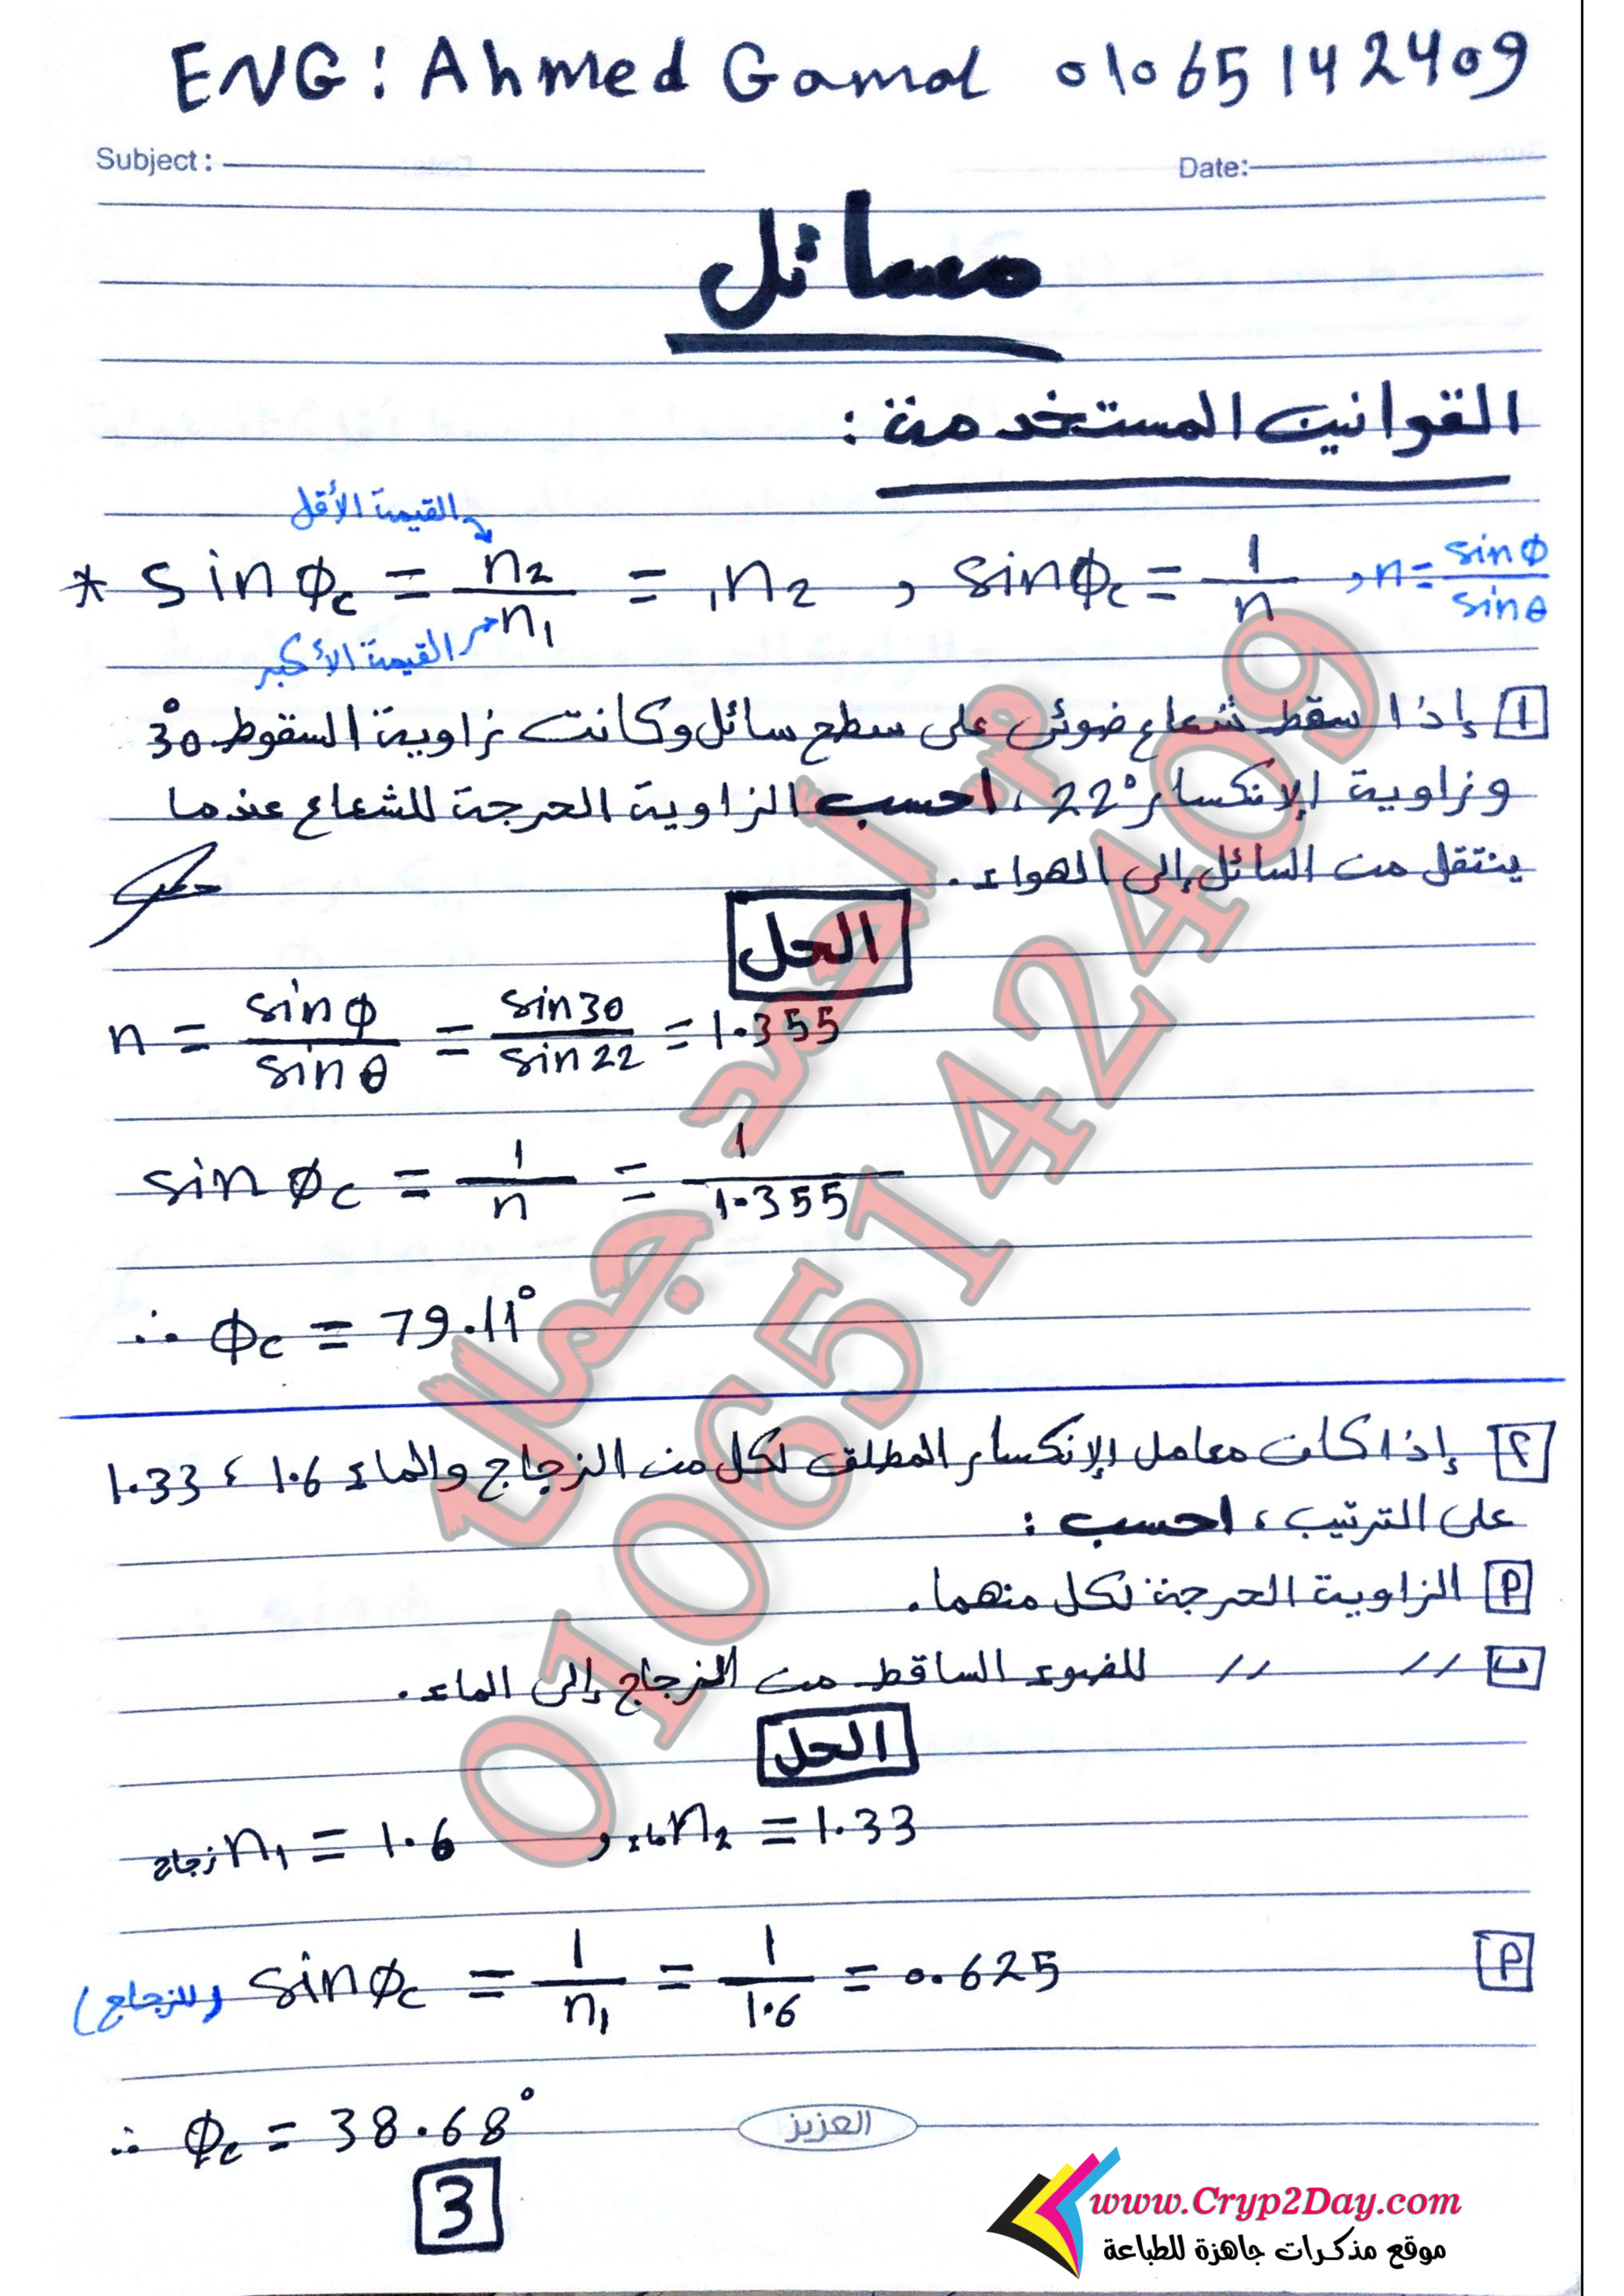 ENG: Ahmed Gamal 01065142409
Subject: Date:
مسائل
القوانين المستخدمة:
القيمة الأقل
* sin φc = n2/n1 = 1n2 , sin φc = 1/n , n = sin φ/sin θ
القيمة الأكبر
1 إذا سقط شعاع ضوئى على سطح سائل وكانت زاوية السقوط 30°
وزاوية الإنكسار 22° ، احسب الزاوية الحرجة للشعاع عندما
ينتقل من السائل إلى الهواء.
الحل
n = sin φ/sin θ = sin 30/sin 22 = 1.355
sin φc = 1/n = 1/1.355
∴ φc = 79.11°
٢ إذا كان معامل الإنكسار المطلق لكل من الزجاج والماء 1.6 ، 1.33
على الترتيب ، احسب :
P الزاوية الحرجة لكل منهما.
ب // // للضوء الساقط من الزجاج إلى الماء.
الحل
زجاج n1 = 1.6 , ماء n2 = 1.33
P
(للزجاج) sin φc = 1/n1 = 1/1.6 = 0.625
∴ φc = 38.68°
العزيز
3
م. أحمد جمال
01065142409
www.Cryp2Day.com
موقع مذكرات جاهزة للطباعة